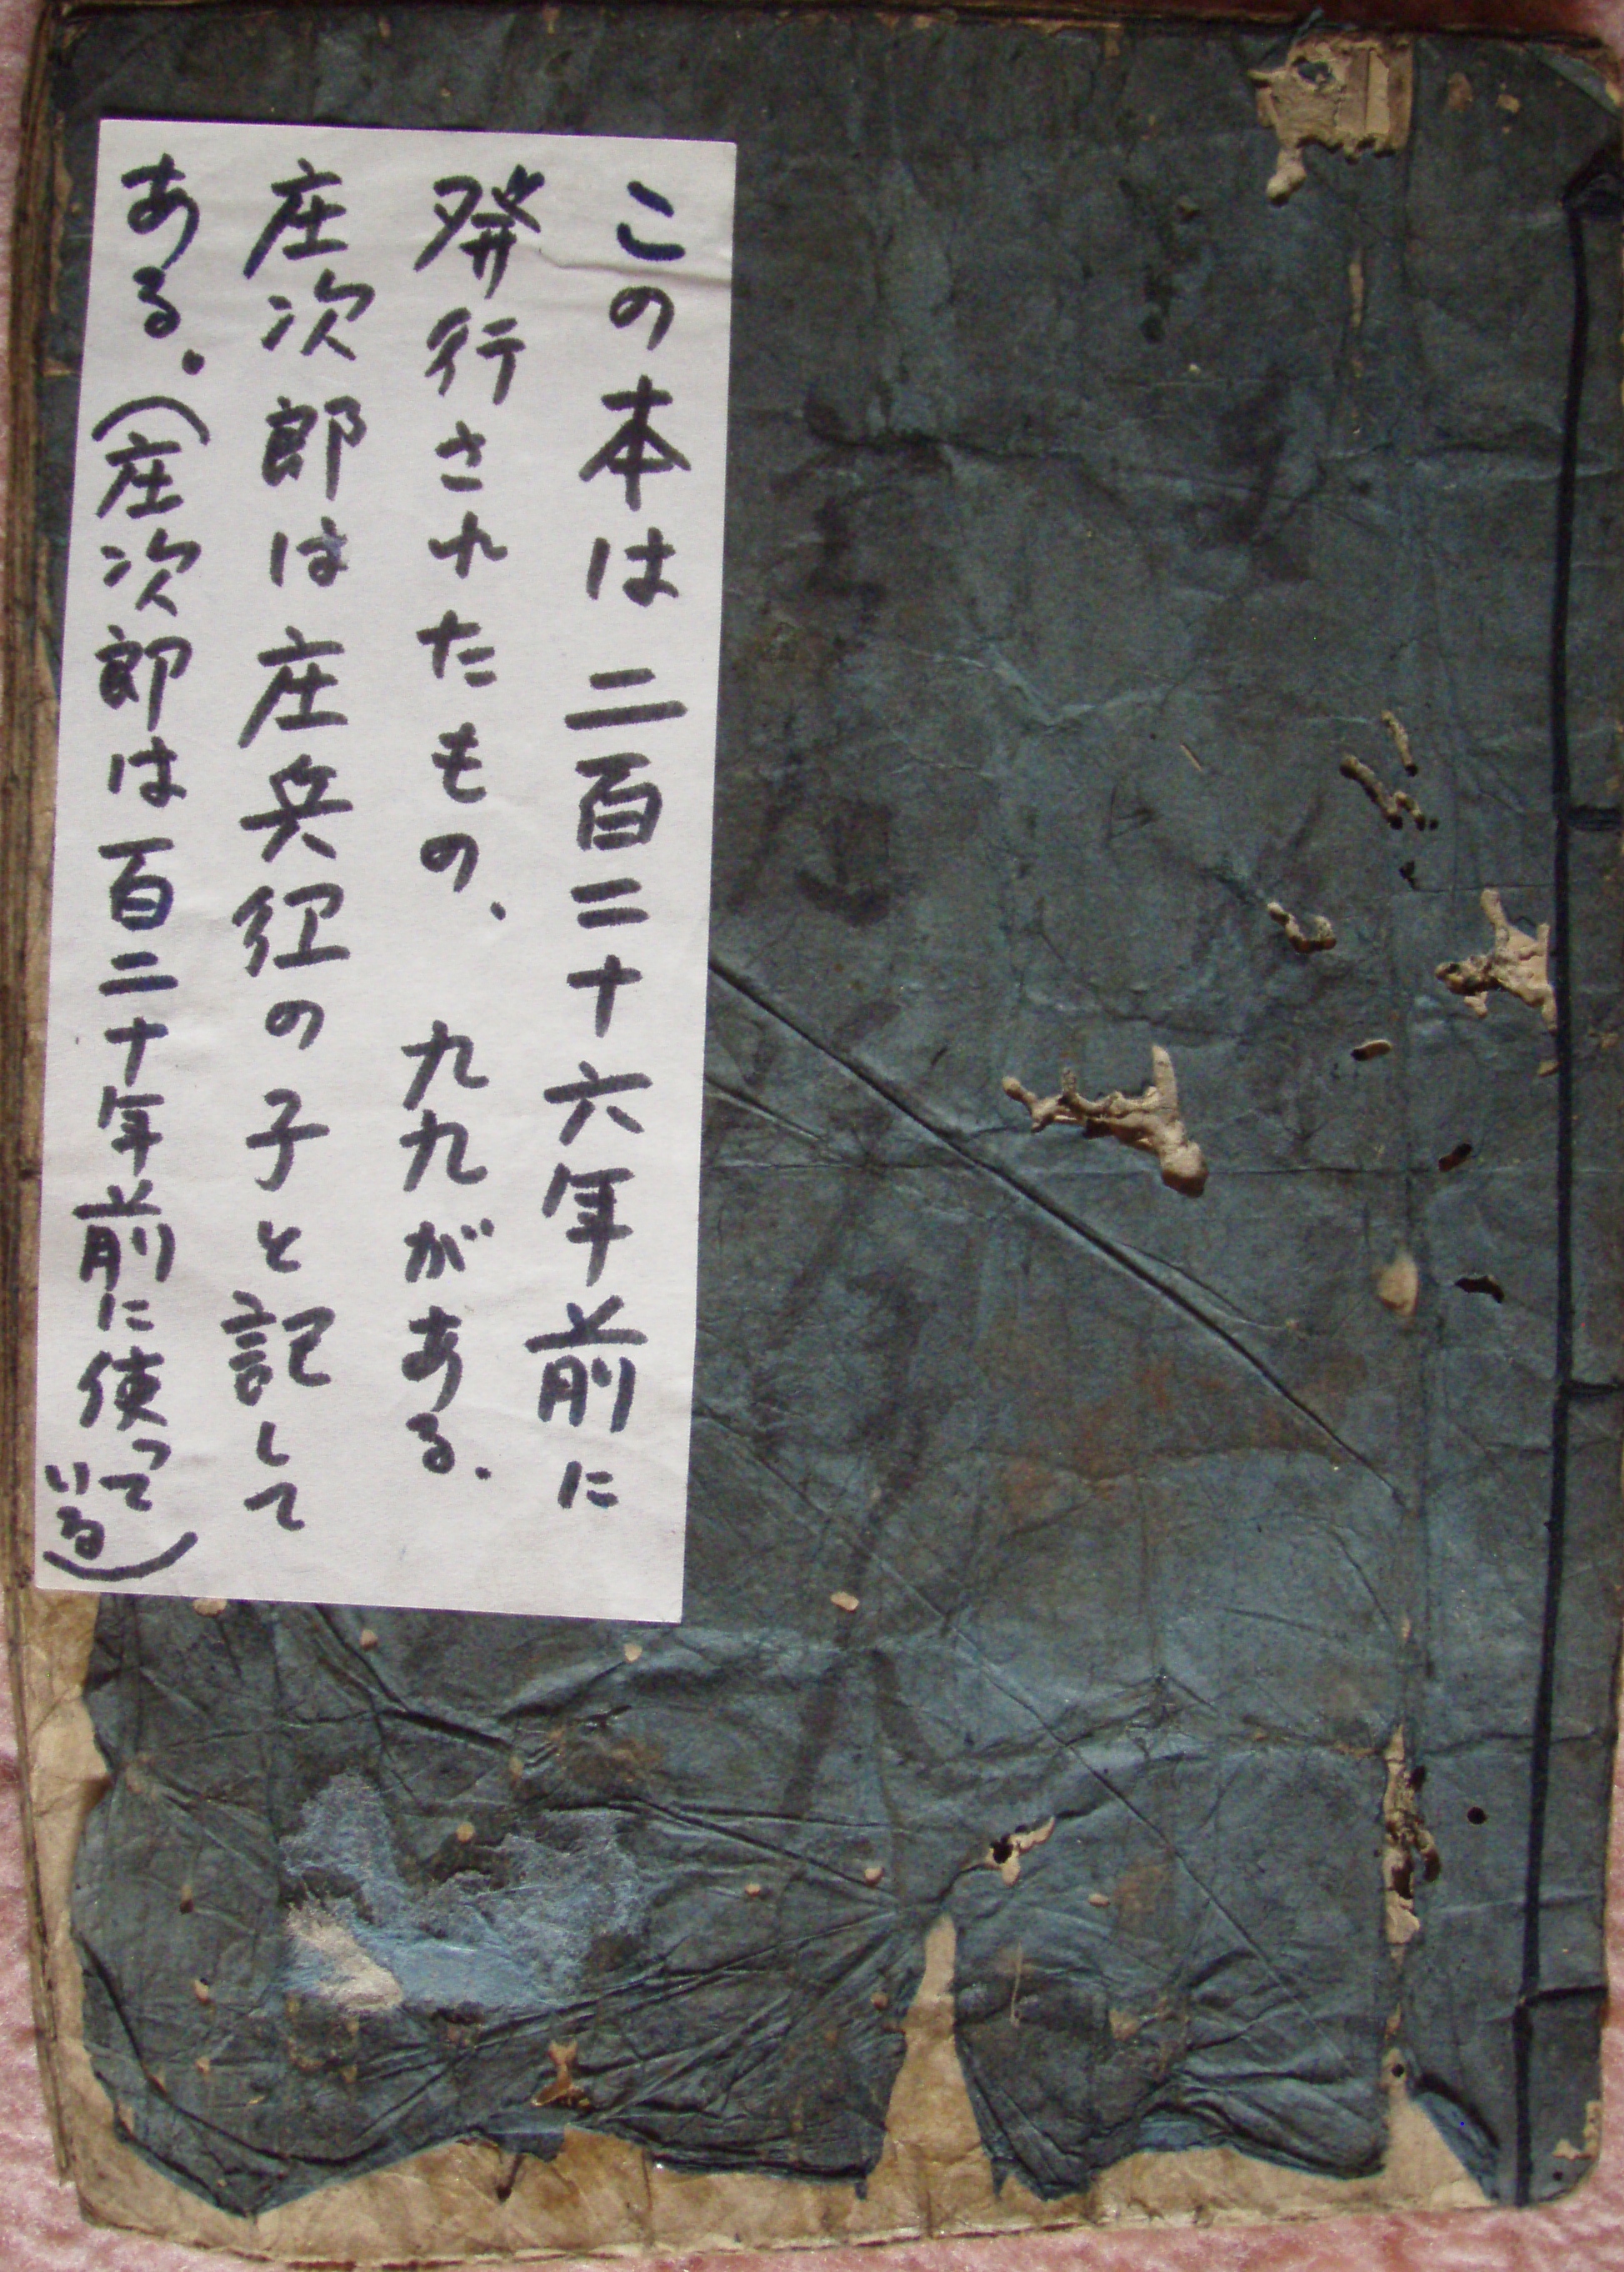 この本は二百二十六年前に
発行されたもの、九九がある.
庄次郎は庄兵衛の子と記して
ある。(庄次郎は百二十年前に使って
いる)